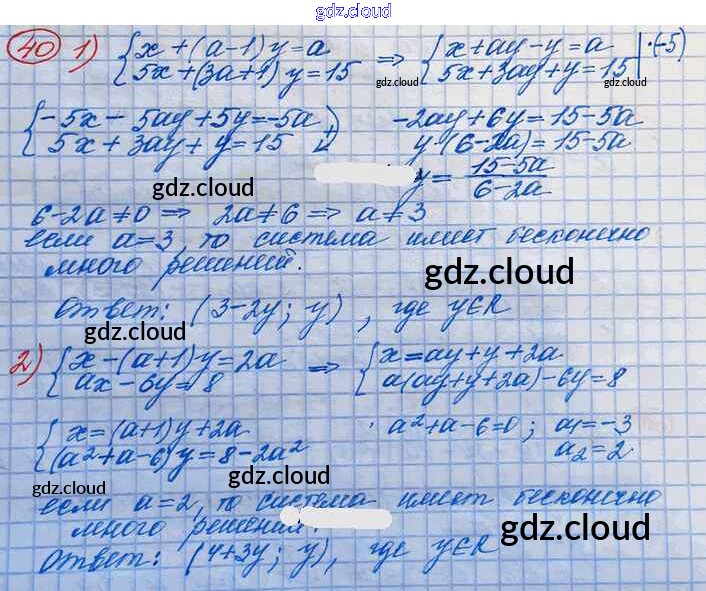 gdz.cloud
40 1) {x + (a-1)y = a => {x + ay - y = a | ·(-5)
{5x + (3a+1)y = 15 {5x + 3ay + y = 15
gdz.cloud gdz.cloud
{-5x - 5ay + 5y = -5a -2ay + 6y = 15 - 5a
{5x + 3ay + y = 15 y·(6-2a) = 15-5a
gdz.cloud y = 15-5a / 6-2a
6-2a ≠ 0 => 2a ≠ 6 => a ≠ 3
если a = 3, то система имеет бесконечно
много решений.
gdz.cloud
Ответ: (3-2y; y), где y∈R
gdz.cloud
2) {x - (a+1)y = 2a => {x = ay + y + 2a
{ax - 6y = 8 {a(ay + y + 2a) - 6y = 8
{x = (a+1)y + 2a · a² + a - 6 = 0; a₁ = -3
{(a² + a - 6)y = 8 - 2a² a₂ = 2
gdz.cloud gdz.cloud
если a = 2, то система имеет бесконечно
много решений.
gdz.cloud
Ответ: (4+3y; y), где y∈R